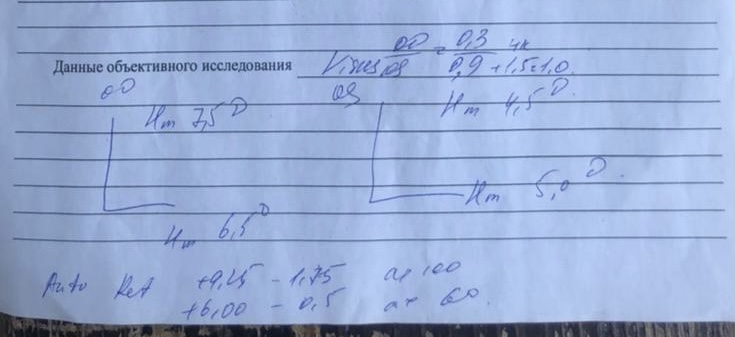 OD = 0,3 н/к
Данные объективного исследования Visus OS 0,9 +1,5=1,0
OD OS
Hm 7,5 D Hm 4,5 D.
Hm 6,5 D Hm 5,0 D.
Auto Ref +9,25 - 1,75 ax 100
+6,00 - 0,5 ax 60.